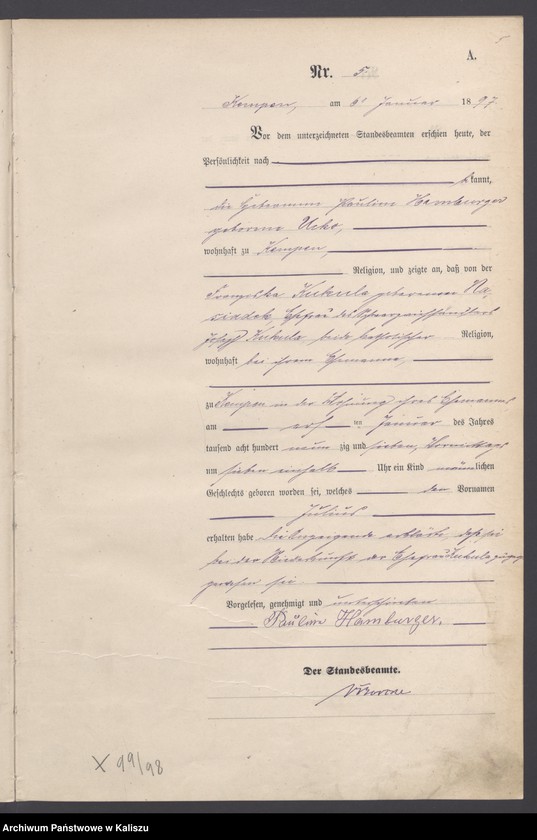 A.
Nr. 5
Kempen, am 6ᵗ Januar 1897
Vor dem unterzeichneten Standesbeamten erschien heute, der
Persönlichkeit nach
kannt,
die Hebamme Pauline Hamburger
geborene
wohnhaft zu Kempen,
Religion, und zeigte an, daß von der
Kukula geborenen
Ehefrau des
Joseph Kukula, beide katholischer Religion,
wohnhaft bei ihrem Ehemanne,
zu Kempen in der Wohnung ihres Ehemannes
am ten Januar des Jahres
tausend acht hundert neun zig und sieben, Vormittags
um sieben einhalb Uhr ein Kind männlichen
Geschlechts geboren worden sei, welches den Vornamen
Julius
erhalten habe Die Anzeigende erklärte, daß sie
bei der Niederkunft der Ehefrau Kukula zugegen
gewesen sei.
Vorgelesen, genehmigt und unterschrieben
Pauline Hamburger.
Der Standesbeamte.
X 99/98
Archiwum Państwowe w Kaliszu